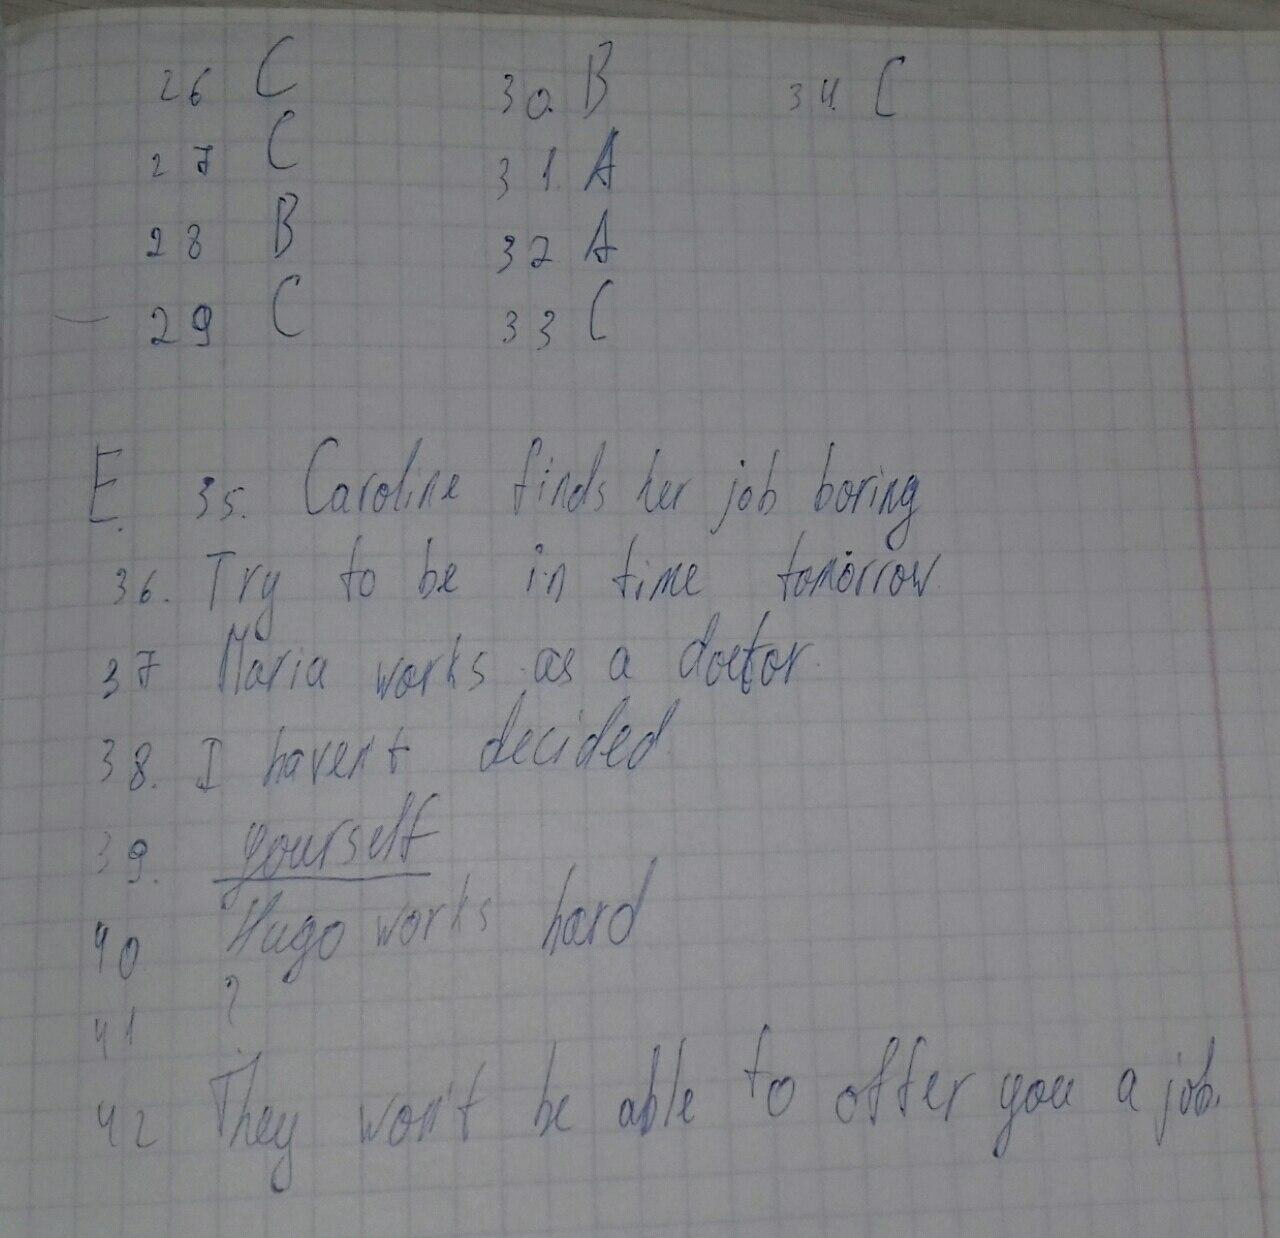 26 C 30. B 34. C
27 C 31. A
28 B 32 A
29 C 33 C
E. 35. Caroline finds her job boring
36. Try to be in time tomorrow.
37 Maria works as a doctor.
38. I haven't decided
39. yourself
40 Hugo works hard
41 ?
42 They won't be able to offer you a job.